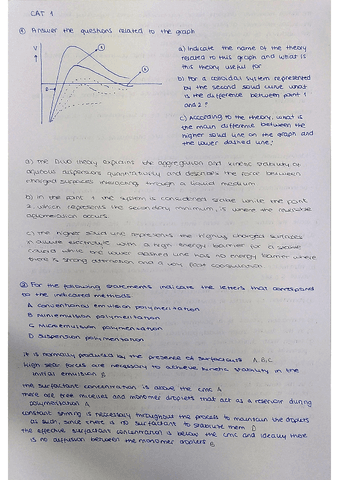 CAT 1
① Answer the questions related to the graph
V
↑
1
2
a) Indicate the name of the theory
related to this graph and what is
this theory useful for
b) For a colloidal system represented
by the second solid curve what
is the difference between point 1
and 2?
c) According to the theory, what is
the main difference between the
higher solid line on the graph and
the lower dashed line?
a) The DLVO theory explains the aggregation and kinetic stability of
aqueous dispersions quantitatively and describes the force between
charged surfaces interacting through a liquid medium
b) In the point 1 the system is considered stable while the point
2, which represents the secondary minimum, is where the reversible
agglomeration occurs.
c) The higher solid line represents the highly charged surfaces
in dilute electrolyte with a high energy barrier for a stable
colloid while the lower dashed line has no energy barrier where
there is strong attraction and a very fast coagulation
② For the following statements indicate the letters that correspond
to the indicated methods.
A Conventional emulsion polymerization
B Miniemulsion polymerization
C Microemulsion polymerization
D Suspension polymerization
It is normally produced by the presence of surfactants A, B, C
High shear forces are necessary to achieve kinetic stability in the
initial emulsion B
The surfactant concentration is above the cmc A
There are free micelles and monomer droplets that act as a reservoir during
polymerization A
Constant stirring is necessary throughout the process to maintain the droplets
as such, since there is no surfactant to stabilize them D
The effective surfactant concentration is below the cmc and ideally there
is no diffusion between the monomer droplets B